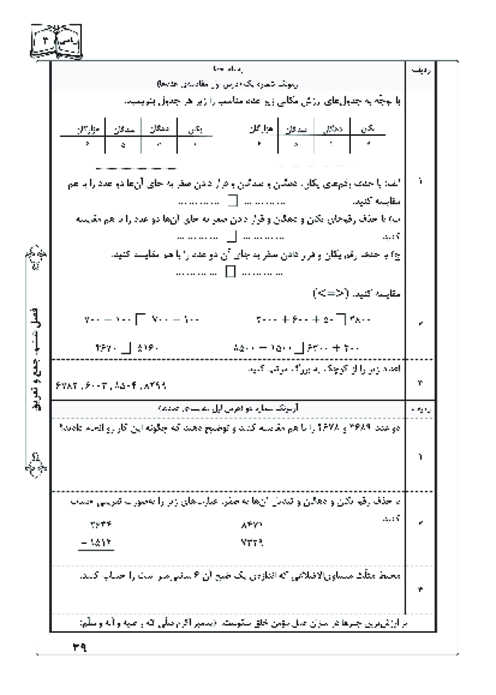 ریاضی ۳
ردیف
آزمونک شماره یک (درس اول مقایسه‌ی عددها)
با توجّه به جدول‌های ارزش مکانی زیر عدد مناسب را زیر هر جدول بنویسید.
یکان دهگان صدگان هزارگان
یکان دهگان صدگان هزارگان
۱
الف) با حذف رقم‌های یکان، دهگان و صدگان و قرار دادن صفر به جای آن‌ها دو عدد را با هم
مقایسه کنید. ............ □ ............
ب) با حذف رقم‌های یکان و دهگان و قرار دادن صفر به جای آن‌ها دو عدد را با هم مقایسه
کنید. ............ □ ............
ج) با حذف رقم یکان و قرار دادن صفر به جای آن دو عدد را با هم مقایسه کنید.
............ □ ............
۲
مقایسه کنید. (<=>)
۷۰۰ - ۱۰۰ □ ۷۰۰ - ۱۰۰
۲۰۰۰ + ۶۰۰ + ۵۰ □ ۲۸۰۰
۴۶۷۰ □ ۵۱۶۰
۸۵۰۰ - ۱۵۰۰ □ ۶۲۰۰ + ۳۰۰
۳
اعداد زیر را از کوچک به بزرگ مرتب کنید.
۸۲۹۹ ، ۸۵۰۴ ، ۶۰۰۳ ، ۶۷۸۲
ردیف
آزمونک شماره دو (درس اول مقایسه‌ی عددها)
۱
دو عدد ۴۶۸۹ و ۴۶۷۸ را با هم مقایسه کنید و توضیح دهید که چگونه این کار را انجام دادید؟
۲
با حذف رقم یکان و دهگان و تبدیل آن‌ها به صفر، عبارت‌های زیر را به‌صورت تقریبی حساب
کنید.
۲۶۳۴
- ۱۵۱۲
۸۴۷۱
۷۳۲۹
۳
محیط مثلّث متساوی‌الاضلاعی که اندازه‌ی یک ضلع آن ۶ سانتی‌متر است را حساب کنید.
با ارزش‌ترین چیزها در میزان عمل مؤمن خلق نیکوست. (پیامبر اکرم صلّی الله و علیه و آله و سلّم)
فصل ششم، جمع و تفریق
۳۹